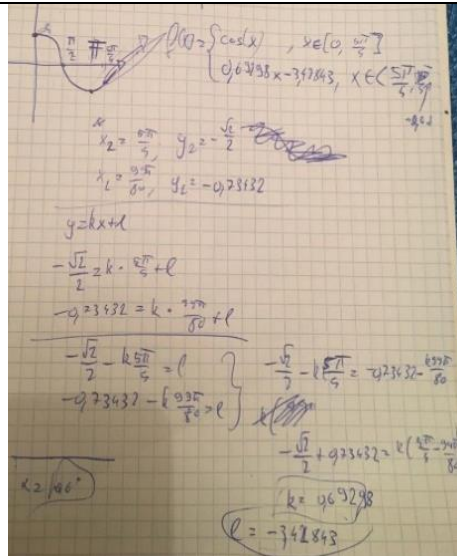 f(x) = { cos(x) , x∈[0, 5π/4]
0,69298x-3,42843, x∈(5π/4,
π/2 π 5π/4
x₂ = 5π/4, y₂ = -√2/2
x₁ = 99π/80, y₁ = -0,73432
y=kx+l
-√2/2 = k · 5π/4 + l
-0,73432 = k · 99π/80 + l
-√2/2 - k 5π/4 = l
-0,73432 - k 99π/80 = l
-√2/2 - k 5π/4 = -0,73432 - k99π/80
-√2/2 + 0,73432 = k(5π/4 - 99π/80
k = 0,69298
l = -3,42843